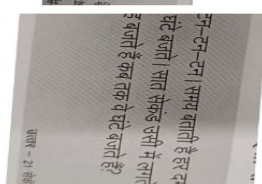 टन-टन-टन। समय बताती है हर द
घंटे बजते। सात सेकंड उसी में लगते
ह बजते हैं कब तक वे घंटे बजते हैं?
उत्तर – 21 सेकं